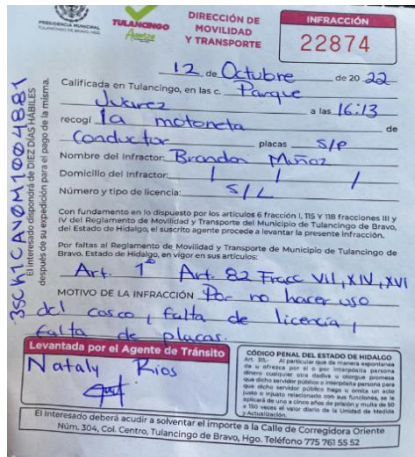 PRESIDENCIA MUNICIPAL
TULANCINGO DE BRAVO, HGO.
TULANCINGO
DIRECCIÓN DE
MOVILIDAD
Y TRANSPORTE
INFRACCIÓN
22874
12 de Octubre de 20 22
Calificada en Tulancingo, en las c. Parque
Juarez a las 16:13
recogí la motoneta de
Conductor placas S/P
Nombre del Infractor: Brandon Muñoz
Domicilio del Infractor: / / /
Número y tipo de licencia: S/L
Con fundamento en lo dispuesto por los artículos 6 fracción I, 115 Y 118 fracciones III y
IV del Reglamento de Movilidad y Transporte del Municipio de Tulancingo de Bravo,
del Estado de Hidalgo, el suscrito agente procede a levantar la presente Infracción.
Por faltas al Reglamento de Movilidad y Transporte de Municipio de Tulancingo de
Bravo. Estado de Hidalgo, en vigor en sus artículos:
Art. 1º Art. 82 Fracc VII, XIV, XVI
MOTIVO DE LA INFRACCIÓN Por no hacer uso
del casco, falta de licencia,
falta de placas.
Levantada por el Agente de Tránsito
Nataly Rios
CÓDIGO PENAL DEL ESTADO DE HIDALGO
Art. 311.- Al particular que de manera espontanea
da u ofrezca por si o por interpósita persona
dinero cualquier otra dadiva u otorgue promesa
que dicho servidor público o interpósita persona para
que dicho servidor público haga o omita un acto
justo o injusto relacionado con sus funciones, se le
aplicará de uno a cinco años de prisión y multa de 50
a 150 veces el valor diario de la Unidad de Medida
y Actualización.
El Interesado deberá acudir a solventar el importe a la Calle de Corregidora Oriente
Núm. 304, Col. Centro, Tulancingo de Bravo, Hgo. Teléfono 775 761 55 52
3SCK1CAN0M1004881
El interesado dispondrá de DIEZ DÍAS HÁBILES
después de su expedición para el pago de la misma.